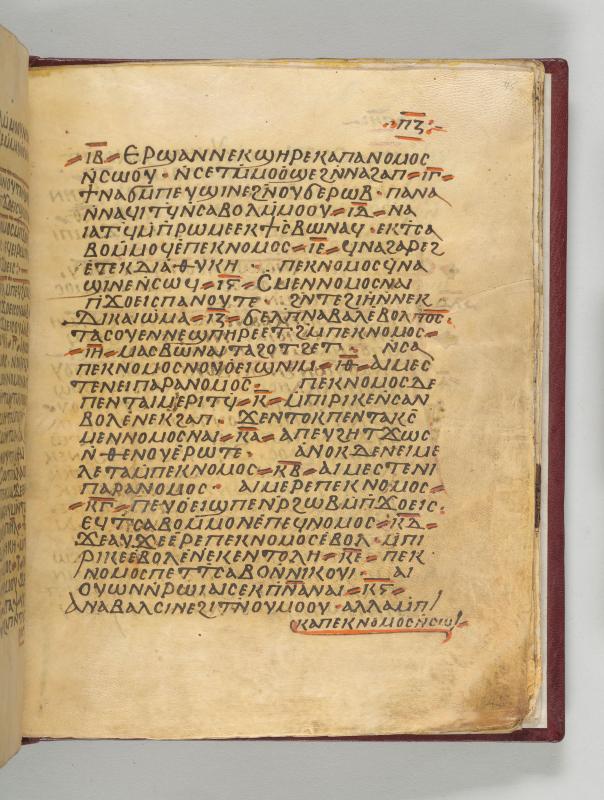 ⲡⲍ
ⲓⲃ ⲉⲣϣⲁⲛⲛⲉⲕϣⲏⲣⲉⲕⲁⲡⲁⲛⲟⲙⲟⲥ
ⲛ̄ⲥⲱⲟⲩ · ⲛ̄ⲥⲉⲧⲙ̄ⲙⲟⲟϣⲉϩⲛ̄ⲛⲁϩⲁⲡ · ⲓⲅ
ϯⲛⲁϭⲙ̄ⲡⲉⲩϣⲓⲛⲉϩⲛ̄ⲟⲩϭⲉⲣⲱⲃ · ⲡⲁⲛⲁ
ⲛ̄ⲛⲁϥⲓⲧϥ̄ⲛ̄ⲥⲁⲃⲟⲗⲙ̄ⲙⲟⲟⲩ · ⲓⲇ ⲛⲁ
ⲓⲁⲧϥ̄ⲙ̄ⲡⲣⲱⲙⲉⲉⲕϯⲥⲃⲱⲛⲁϥ · ⲉⲕⲧⲥⲁ
ⲃⲟⲙ̄ⲙⲟϥⲉⲡⲉⲕⲛⲟⲙⲟⲥ · ⲓⲉ ϥⲛⲁϩⲁⲣⲉϩ
ⲉⲧⲉⲕⲇⲓⲁⲑⲩⲕⲏ · ⲡⲉⲕⲛⲟⲙⲟⲥϥⲛⲁ
ϣⲓⲛⲉⲛ̄ⲥⲱϥ · ⲓⲋ ⲥⲙⲉⲛⲛⲟⲙⲟⲥⲛⲁⲓ
ⲡ̄ϫⲟⲉⲓⲥⲡⲁⲛⲟⲩⲧⲉ · ϩⲛ̄ⲧⲉϩⲓⲏⲛ̄ⲛⲉⲕ
ⲇⲓⲕⲁⲓⲱⲙⲁ ⲓⲍ ϭⲉⲗⲡ̄ⲛⲁⲃⲁⲗⲉⲃⲟⲗ
ⲧⲁⲥⲟⲩⲉⲛⲛⲉϣⲡⲏⲣⲉⲉⲧϩⲙ̄ⲡⲉⲕⲛⲟⲙⲟⲥ
ⲓⲏ ⲙⲁⲥⲃⲱⲛⲁⲓⲧⲁϩⲟⲧϩⲉⲧ · ⲛ̄ⲥⲁ
ⲡⲉⲕⲛⲟⲙⲟⲥⲛ̄ⲟⲩⲟⲉⲓϣⲛⲓⲙ ⲓⲑ ⲁⲓⲙⲉⲥ
ⲧⲉⲛⲉⲓⲡⲁⲣⲁⲛⲟⲙⲟⲥ · ⲡⲉⲕⲛⲟⲙⲟⲥⲇⲉ
ⲡⲉⲛⲧⲁⲓⲙⲉⲣⲓⲧϥ̄ ⲕ ⲙ̄ⲡⲓⲣⲓⲕⲉⲛ̄ⲥⲁⲛ
ⲃⲟⲗⲉ̄ⲛⲉⲕϩⲁⲡ · ϫⲉⲛⲧⲟⲕⲡⲉⲛⲧⲁⲕⲥ̄
ⲙⲉⲛⲛⲟⲙⲟⲥⲛⲁⲓ ⲕⲁ ⲁⲡⲉⲩϩⲏⲧϫⲱⲥ
ⲛ̄ⲑⲉⲛⲟⲩⲉⲣⲱⲧⲉ · ⲁⲛⲟⲕⲇⲉⲛⲉⲓⲙⲉ
ⲗⲉⲧⲁⲙ̄ⲡⲉⲕⲛⲟⲙⲟⲥ ⲕⲃ ⲁⲓⲙⲉⲥⲧⲉⲛⲓ
ⲡⲁⲣⲁⲛⲟⲙⲟⲥ · ⲁⲓⲙⲉⲣⲉⲡⲉⲕⲛⲟⲙⲟⲥ
ⲕⲅ ⲡⲉⲩⲟⲉⲓϣⲡⲉⲛ̄ⲣϩⲱⲃⲙ̄ⲡϫⲟⲉⲓⲥ
ⲉϥⲧⲥⲁⲃⲟⲙ̄ⲙⲟⲛⲉ̄ⲡⲉϥⲛⲟⲙⲟⲥ ⲕⲇ
ϫⲉⲁⲩϫⲉⲉⲣⲉⲡⲉⲕⲛⲟⲙⲟⲥⲉⲃⲟⲗ · ⲙ̄ⲡⲓ
ⲣⲓⲕⲉⲉⲃⲟⲗⲉ̄ⲛⲉⲕⲉⲛⲧⲟⲗⲏ ⲕⲉ ⲡⲉⲕ
ⲛⲟⲙⲟⲥⲡⲉⲧⲧⲥⲁⲃⲟⲛ̄ⲛⲓⲕⲟⲩⲓ · ⲁⲓ
ⲟⲩⲱⲛⲛ̄ⲣⲱⲓⲁⲓⲥⲉⲕⲡⲛ̄ⲁⲛⲁⲓ ⲕⲋ
ⲁⲛⲁⲃⲁⲗⲥⲓⲛⲉϩⲓⲧⲛⲟⲩⲙⲟⲟⲩ · ⲁⲗⲗⲁⲙ̄ⲡⲓ
ⲕⲁⲡⲉⲕⲛⲟⲙⲟⲥⲛ̄ⲥⲱⲓ